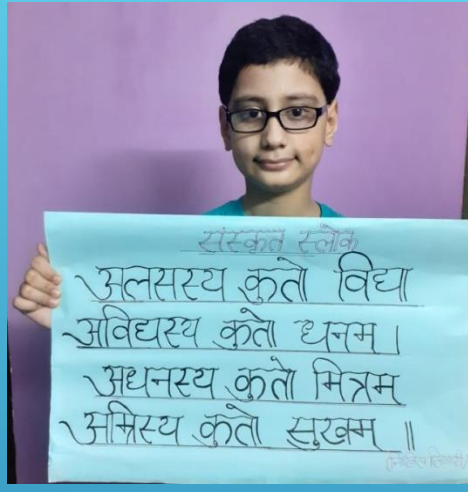 संस्कृत स्लोक
अलसस्य कुतो विद्या
अविद्यस्य कुतो धनम ।
अधनस्य कुतो मित्रम्
अमिस्य कुतो सुखम् ॥